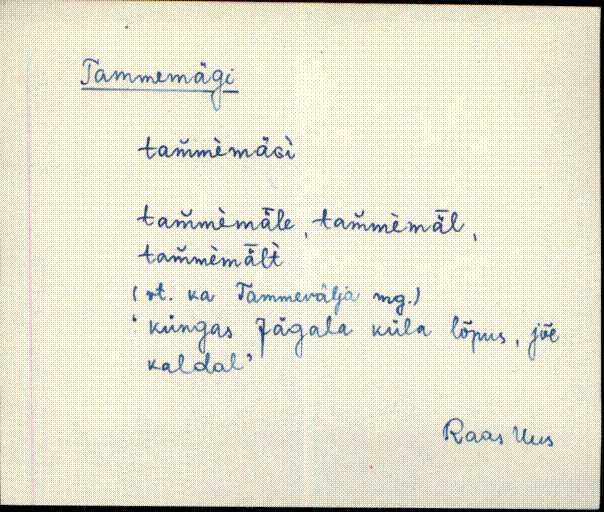 Tammemägi
tam̆mèmäGì
tam̆mèmäl̄e, tam̆mèmäl̄,
tam̆mèmäl̄tì
(vt. ka Tammevälja mg.)
'küngas Jägala küla lõpus, jõe
kaldal'
Raas Uus